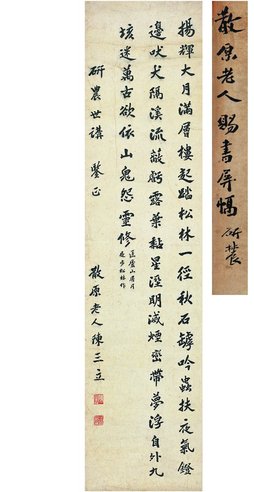 揚輝大月滿層樓起踏松林一徑秋石罅吟蟲扶夜氣鐙
邊吠犬隔溪流蔽虧露葉黏星溼明滅煙巒帶夢浮自外九
垓迷萬古欲依山鬼怨靈修
匡廬山居月
夜步松林作
研農世講 鑒正
散原老人陳三立
散原老人賜書屏幅
研農